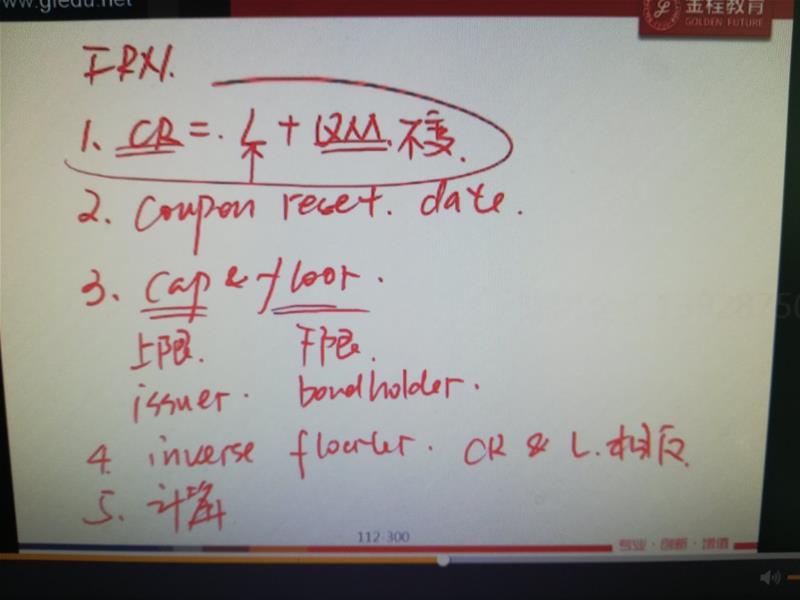 www.gfedu.net
金程教育
GOLDEN FUTURE
FRN.
1. CR = L + QM. 不变.
2. coupon reset. date.
3. cap & floor.
上限. 下限.
issuer. bondholder.
4. inverse floater. CR & L. 相反.
5. 计算
112-300
专业·创新·增值